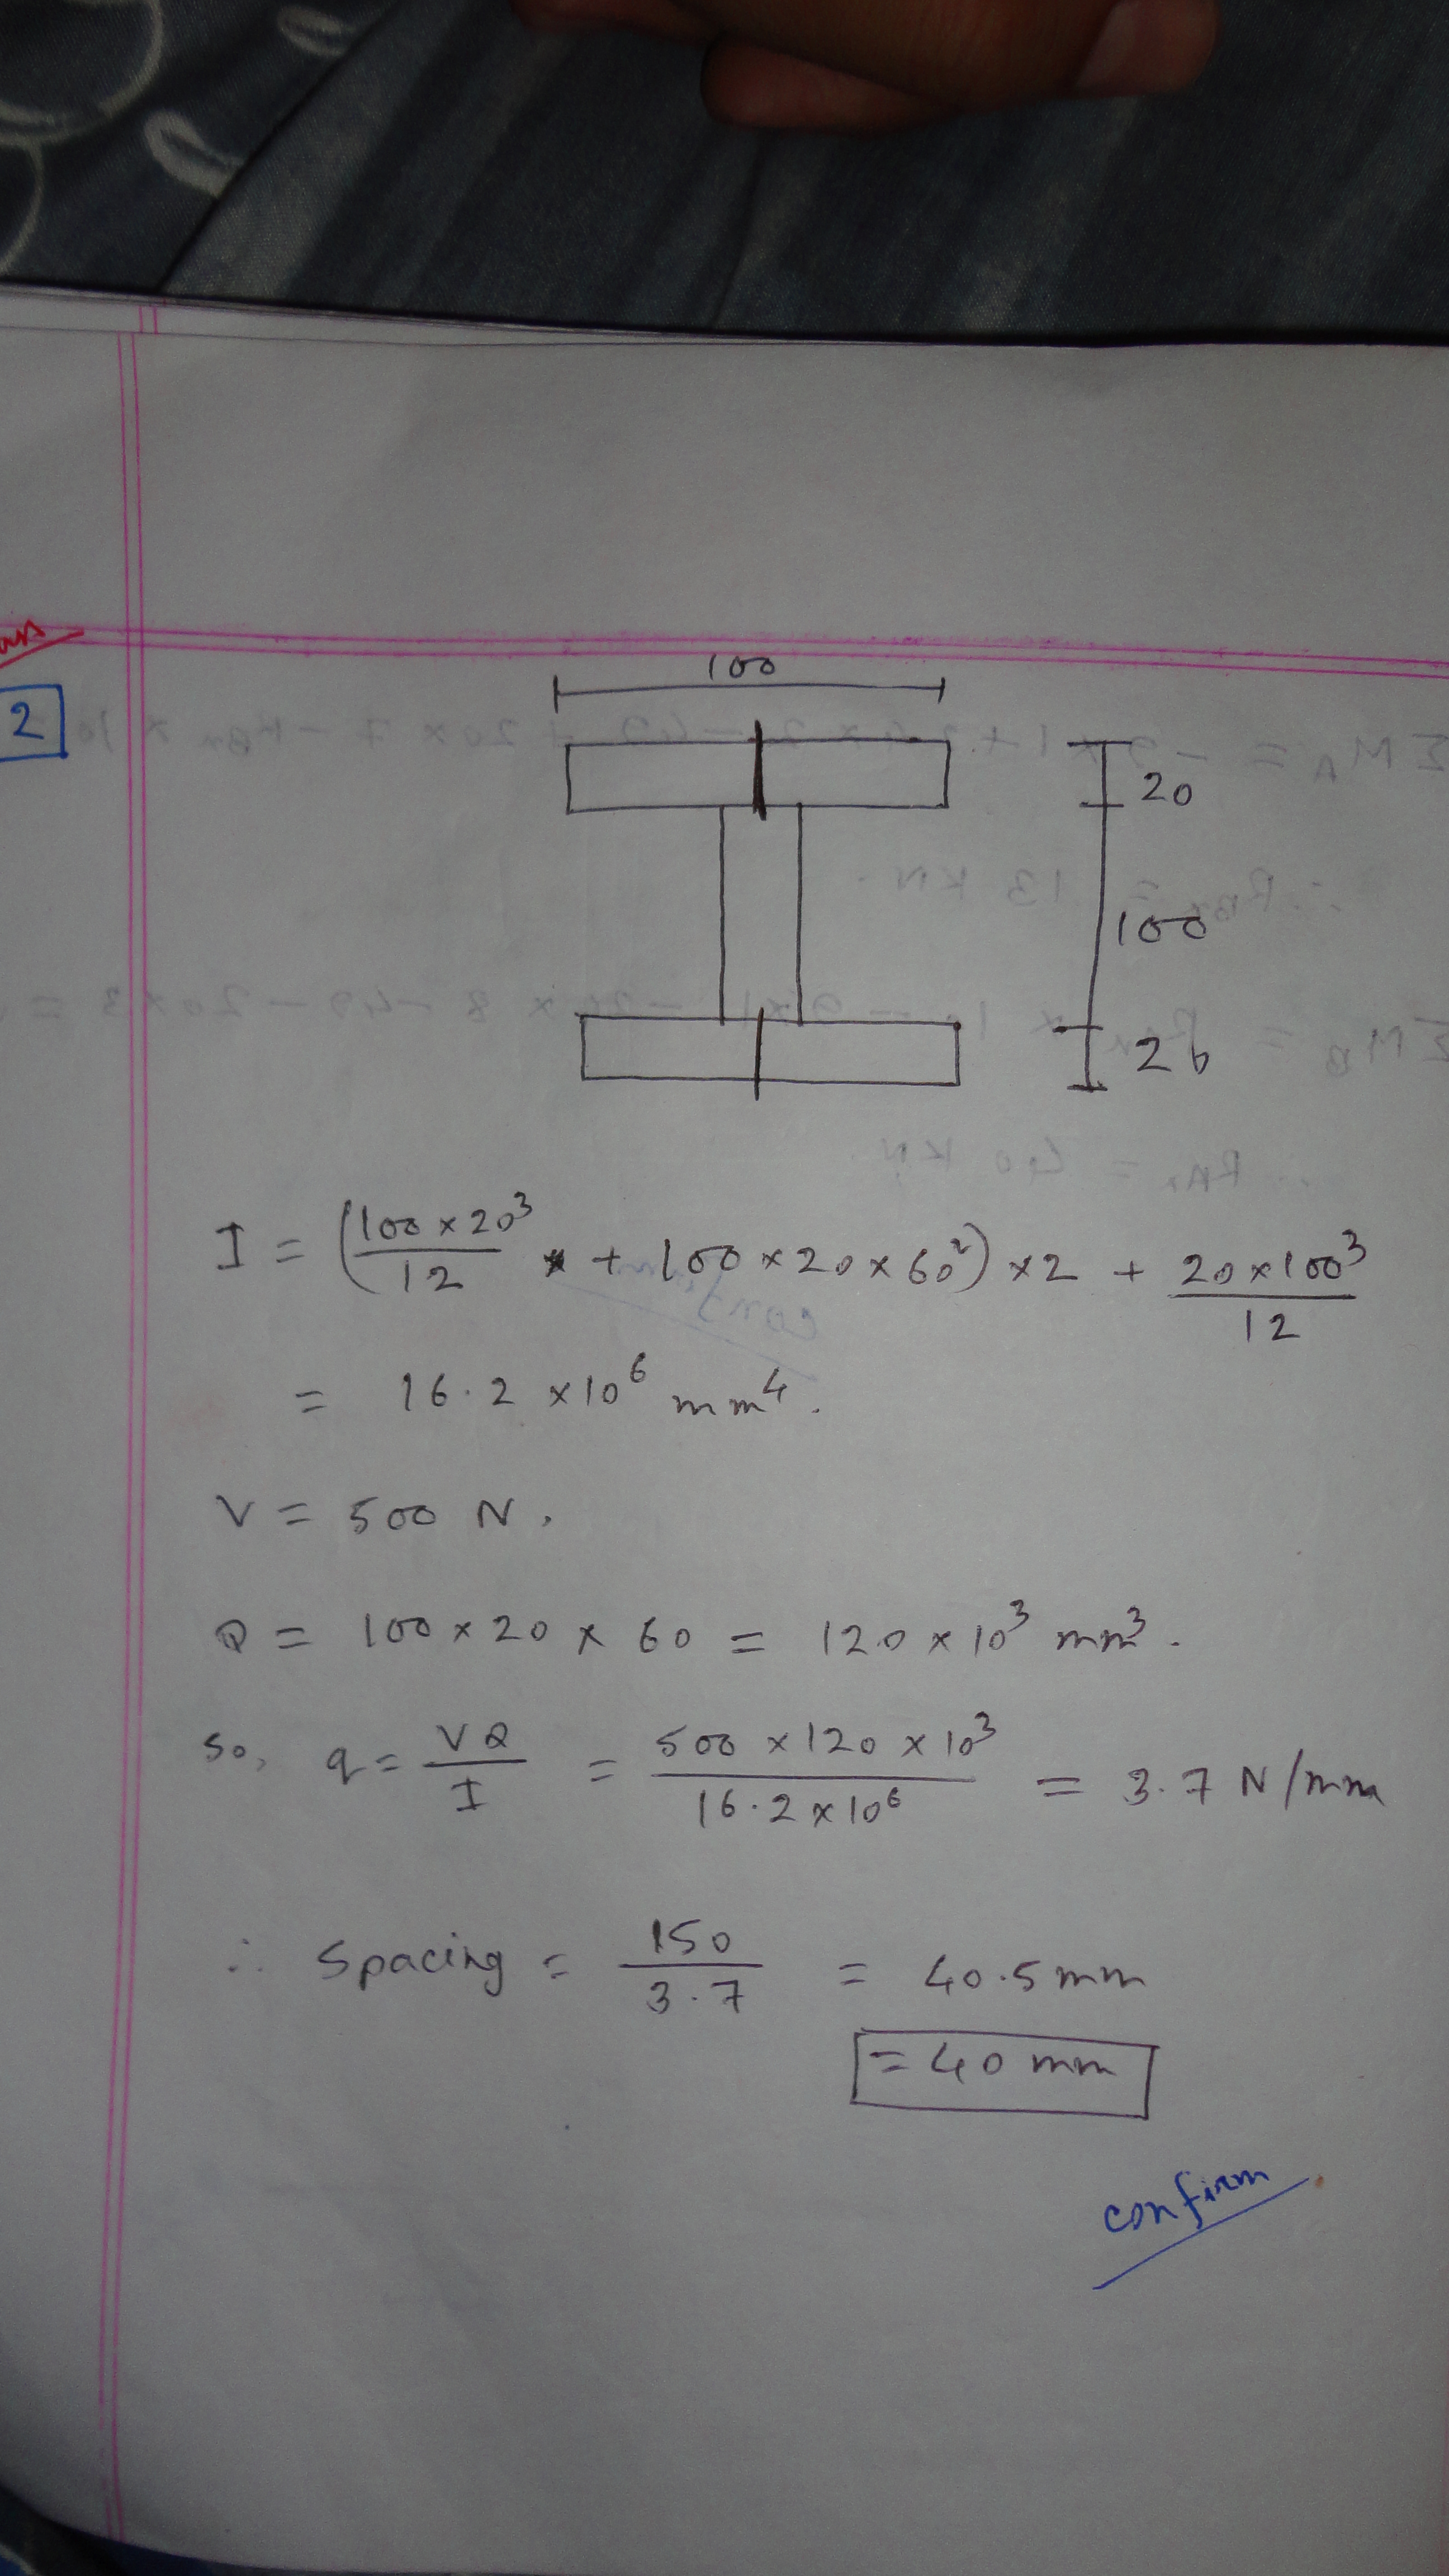 ans
2
100
20
100
20
I = (100 × 20³/12 + 100 × 20 × 60²) × 2 + 20 × 100³/12
= 16.2 × 10⁶ mm⁴.
V = 500 N.
Q = 100 × 20 × 60 = 120 × 10³ mm³.
So, q = VQ/I = 500 × 120 × 10³/16.2 × 10⁶ = 3.7 N/mm
∴ Spacing = 150/3.7 = 40.5 mm
= 40 mm
confirm